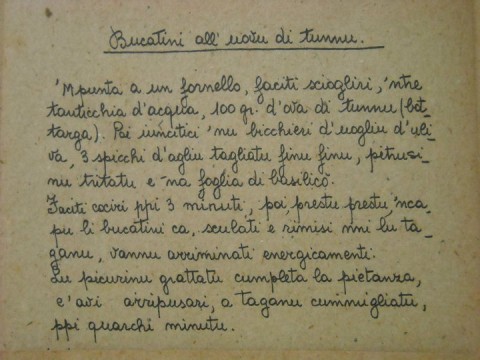 Bucatini all' uovu di tunnu.
'Mpunta a un fornello, faciti sciogliri, 'ntre
tanticchia d'acqua, 100 gr. d'ova di tunnu (bot-
targa). Poi iuncitici 'nu bicchieri d'uogliu d'uli-
va, 3 spicchi d'agliu tagliatu finu finu, pitrusi-
nu tritatu e -na foglia di basilicò.
Faciti cociri ppi 3 minuti, poi, prestu prestu, 'nca-
pu li bucatini ca, sculati e rimisi nni lu ta-
ganu, vannu arriminati energicamenti.
Lu picurinu grattatu cumpleta la pietanza,
e' avi arripusari, a taganu cummigliatu,
ppi quarchi minutu.